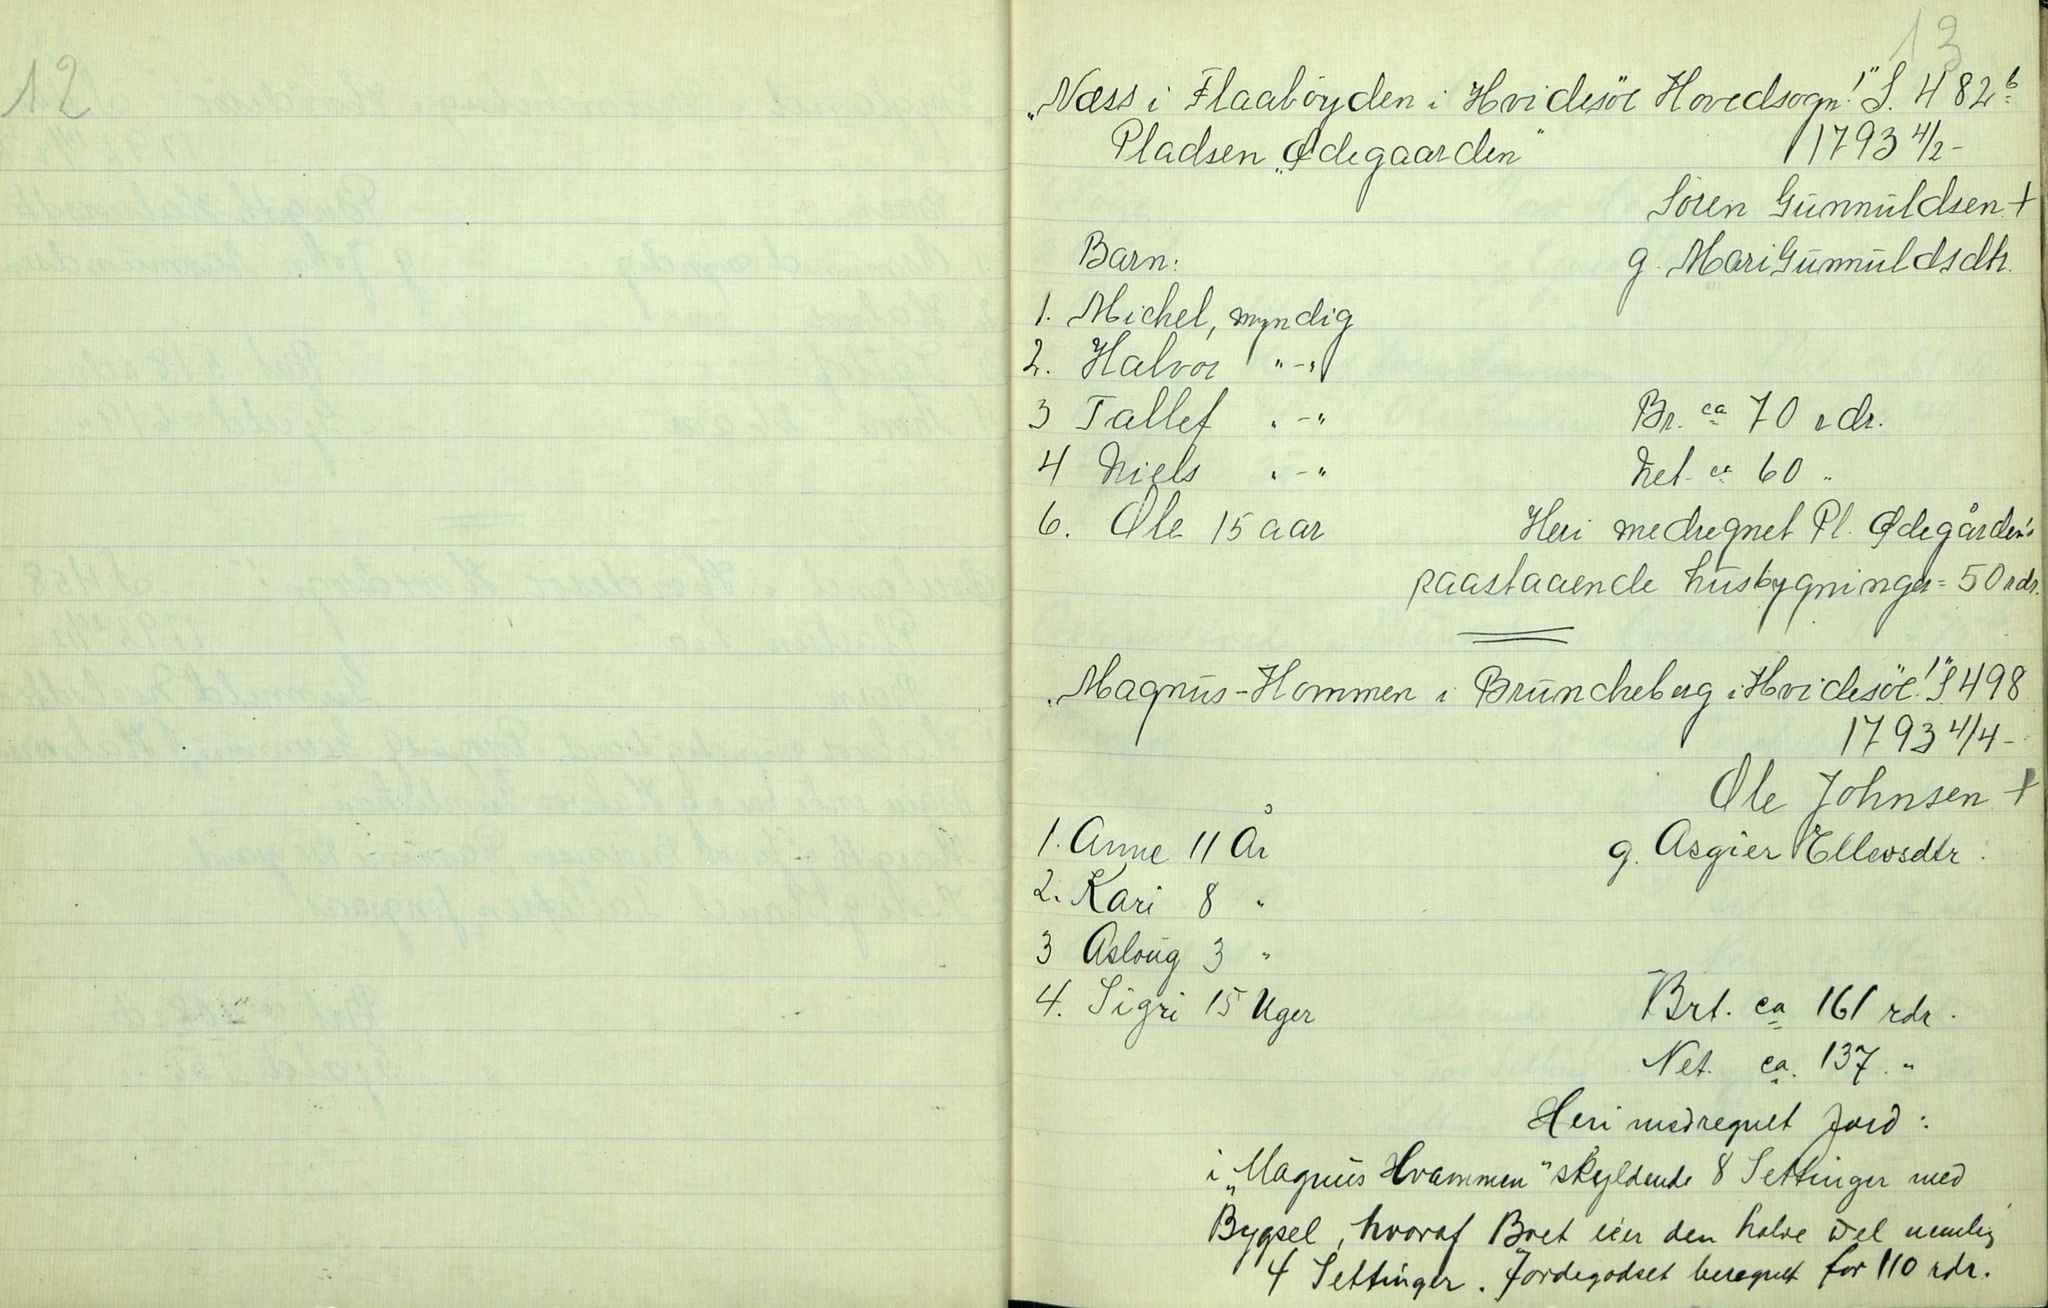 12
13
„Næss i Flaabøyden i Hvidesöe Hovedsogn!" S. 482 b
Pladsen „Ødegaarden" 1793 4/2-
Sören Gunnuldsen +
Barn: g. Mari Gunnuldsdtr.
1. Michel, myndig
2. Halvor "-"
3 Tallef "-" Br. ca 70 rdr.
4 Niels "-" Net. ca 60 "
6. Ole 15 aar Heri medregnet Pl. Ødegården's
paastaaende husbygninger = 50 rdr.
„Magnus-Hommen i Bruncheberg i Hvidesöe!" S 498
1793 4/4-
Ole Johnsen +
1. Anne 11 År g. Asgier Ellevsdtr.
2. Kari 8 "
3 Asloug 3 "
4. Sigri 15 Uger Brt. ca 161 rdr.
Net. ca. 137. "
Heri medregnet Jord:
i „Magnus Hvammen" skyldende 8 Settinger med
Bygsel, hvoraf Boet eier den halve Del nemlig
4 Settinger. Jordegodset beregnet for 110 rdr.